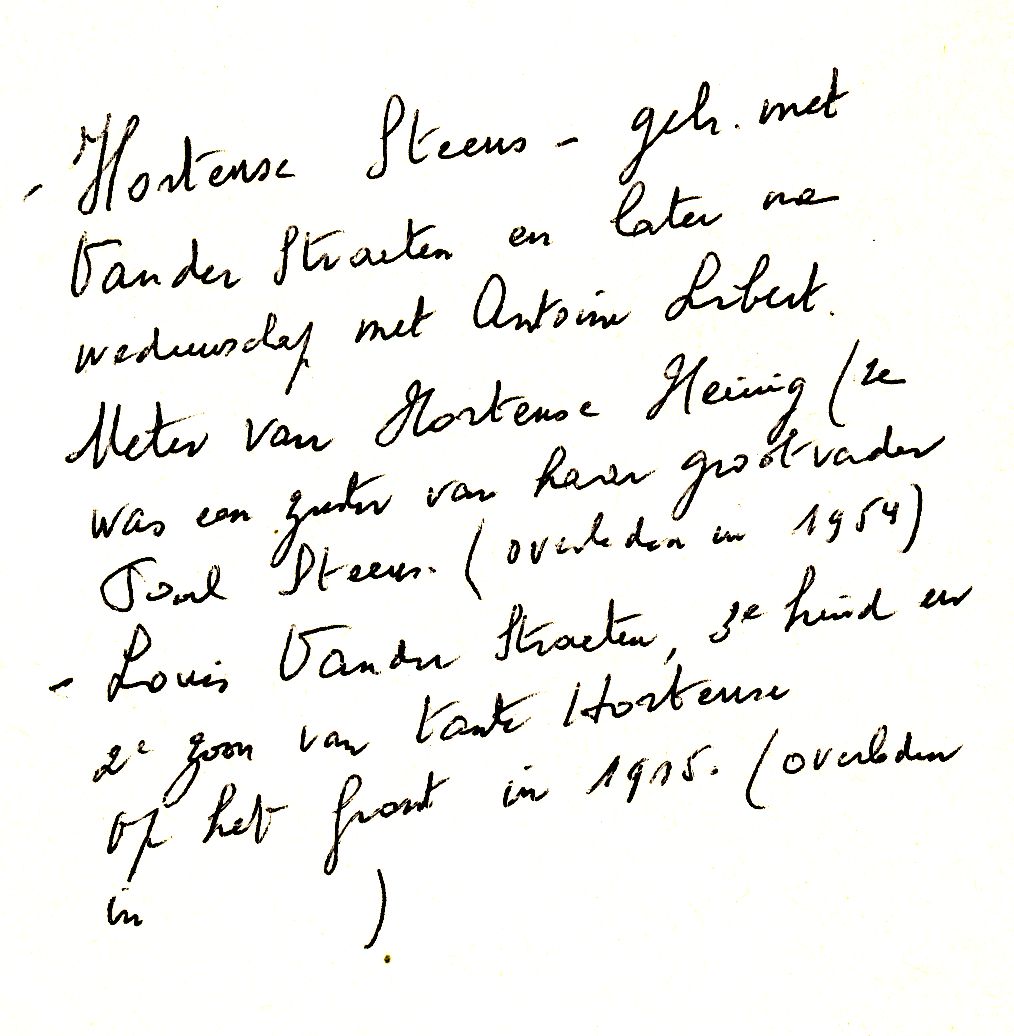 - Hortense Steens - geh. met
Van der Straeten en later na
weduwschap met Antoine Libert.
Meter van Hortense Heinig (ze
was een zuster van haar grootvader
Paul Steens. (overleden in 1954)
- Louis Van der Straeten, 3e kind en
2e zoon van tante Hortense
op het front in 1915. (overleden
in )